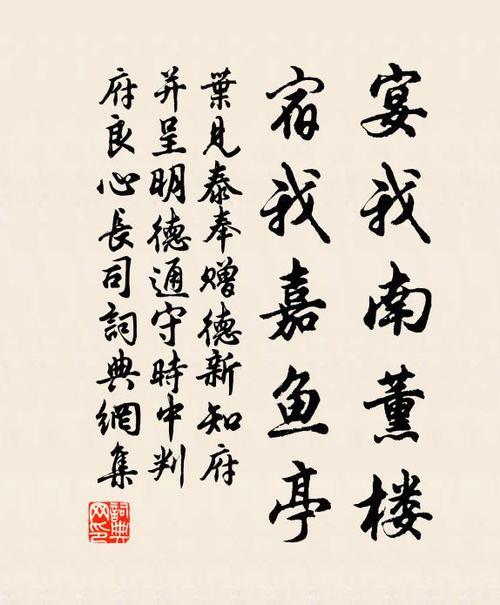 宴我南薰楼
宿我嘉鱼亭
葉見泰奉赠德新知府
并呈明德通守時中判
府良心長司詞典網集
詞典
网印